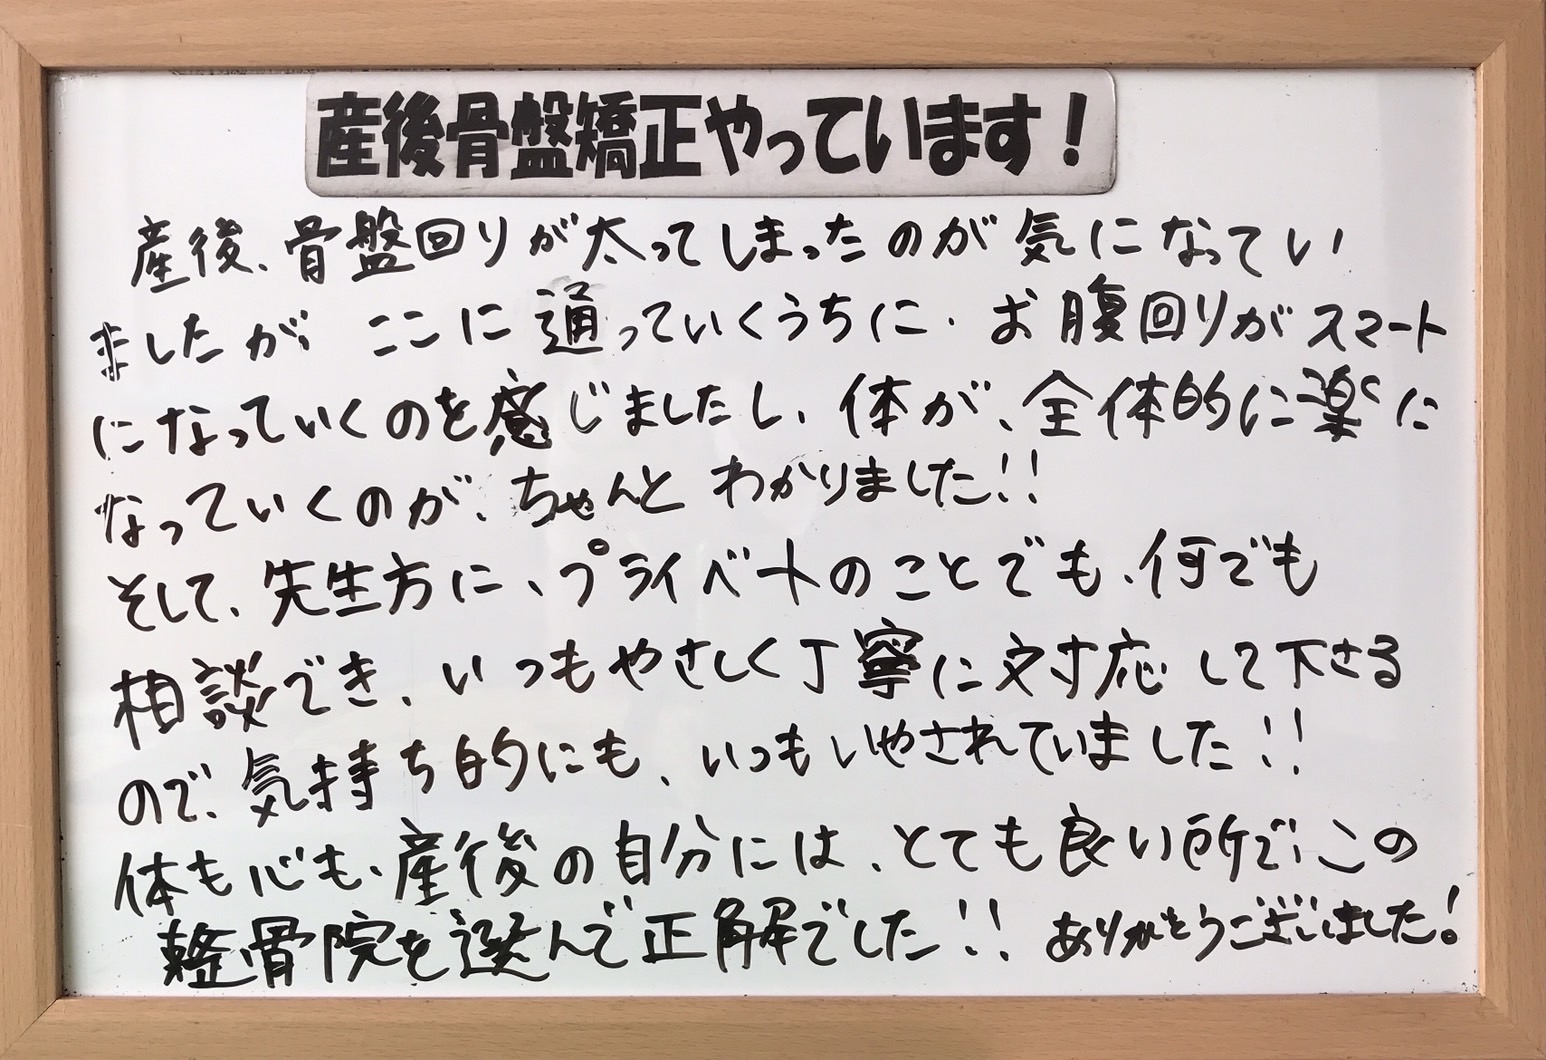 産後骨盤矯正やっています!
産後、骨盤回りが太ってしまったのが気になってい
ましたが ここに通っていくうちに、お腹回りがスマート
になっていくのを感じましたし、体が、全体的に楽に
なっていくのが、ちゃんと わかりました!!
そして、先生方に、プライベートのことでも、何でも
相談でき、いつもやさしく丁寧に対応して下さる
ので、気持ち的にも、いつもいやされていました!!
体も心も、産後の自分には、とても良い所で、この
整骨院を選んで正解でした!! ありがとうございました!